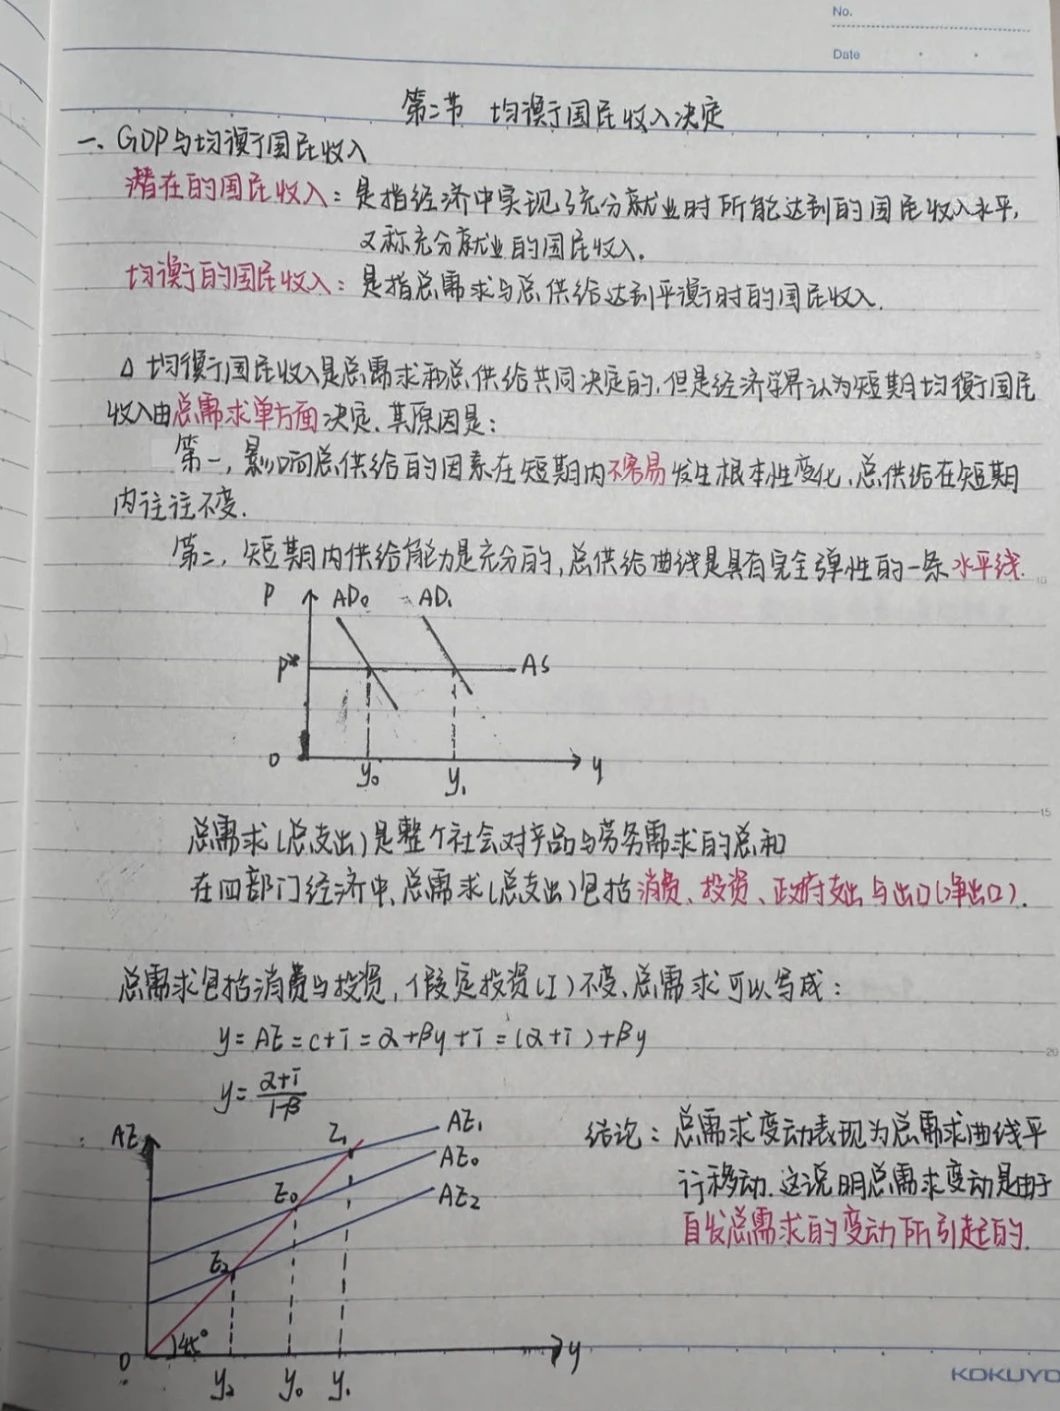 No.
Date
第二节 均衡国民收入决定
一、GDP与均衡国民收入
潜在的国民收入：是指经济中实现了充分就业时所能达到的国民收入水平，
又称充分就业的国民收入.
均衡的国民收入：是指总需求与总供给达到平衡时的国民收入.
△ 均衡国民收入是总需求和总供给共同决定的,但是经济学界认为短期均衡国民
收入由总需求单方面决定.其原因是：
第一,影响总供给的因素在短期内不容易发生根本性变化,总供给在短期
内往往不变.
第二,短期内供给能力是充分的,总供给曲线是具有完全弹性的一条水平线.
P AD₀ AD₁
P* AS
0 y₀ y₁ y
总需求(总支出)是整个社会对产品与劳务需求的总和
在四部门经济中,总需求(总支出)包括消费、投资、政府支出与出口(净出口).
总需求包括消费与投资,假定投资(I)不变、总需求可以写成：
y=AE=c+i=α+βy+i=(α+i)+βy
y=α+i/1-β
AE E₁ AE₁
E₀ AE₀
E₂ AE₂
45°
0 y₂ y₀ y₁ y
结论：总需求变动表现为总需求曲线平
行移动.这说明总需求变动是由于
自发总需求的变动所引起的.
KOKUYO
5
10
15
20